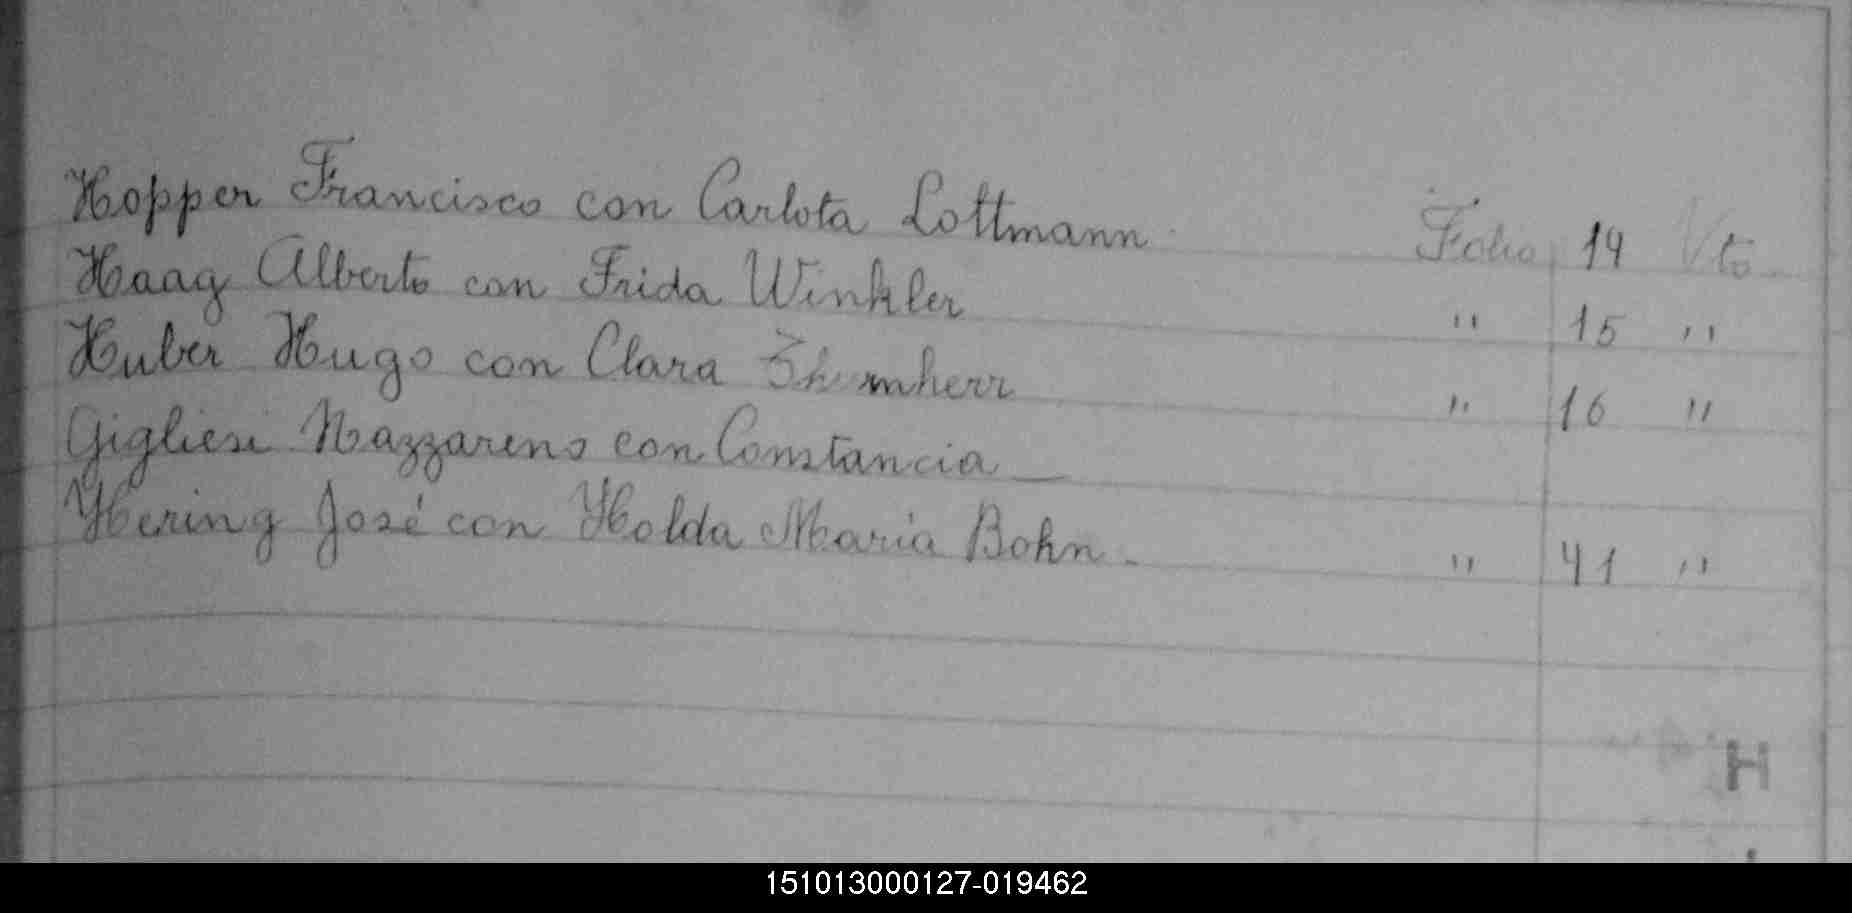 Hopper Francisco con Carlota Lottmann Folio 14 Vto
Haag Alberto con Frida Winkler " 15 "
Huber Hugo con Clara " 16 "
Gigliesi Nazzareno con Constancia
Hering José con Holda Maria Bohn " 41 "
H
151013000127-019462